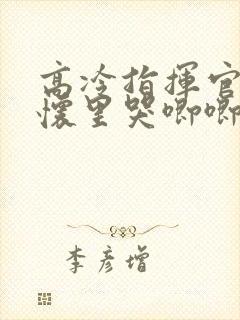 高冷指揮官
懷里哭唧唧
李彥增